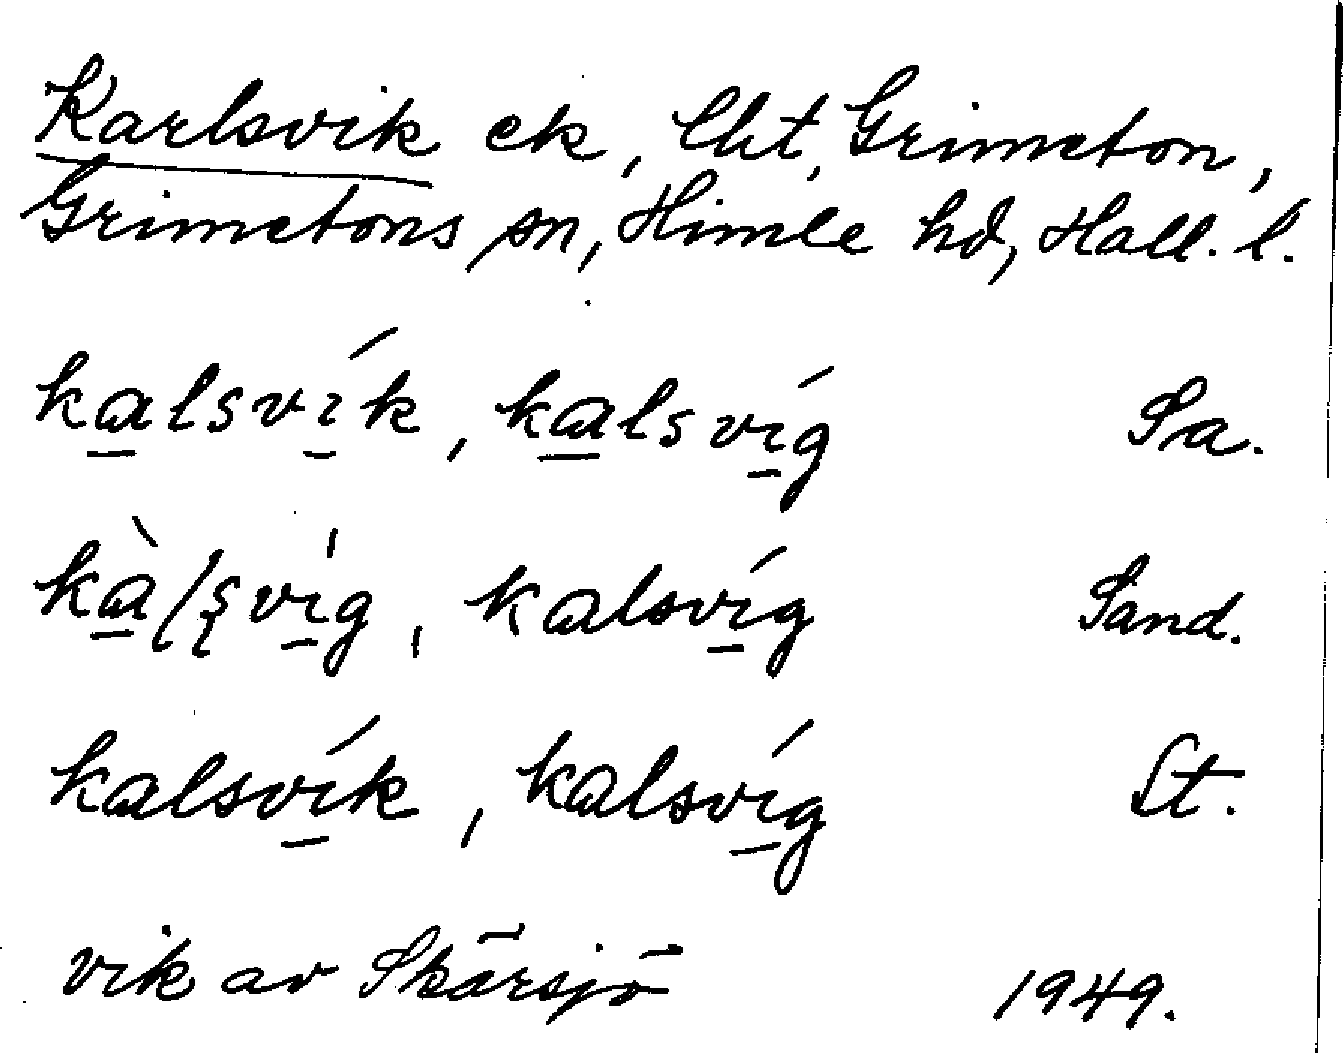 Karlsvik ek, lht, Grimeton,
Grimetons sn, Himle hd, Hall. l.
ka̲lsví̲k, ka̲lsví̲g Sa.
kà̲lsvi̲̍g, kalsví̲g Sand.
kalsví̲k, kalsví̲g St.
vik av Skärsjö 1949.